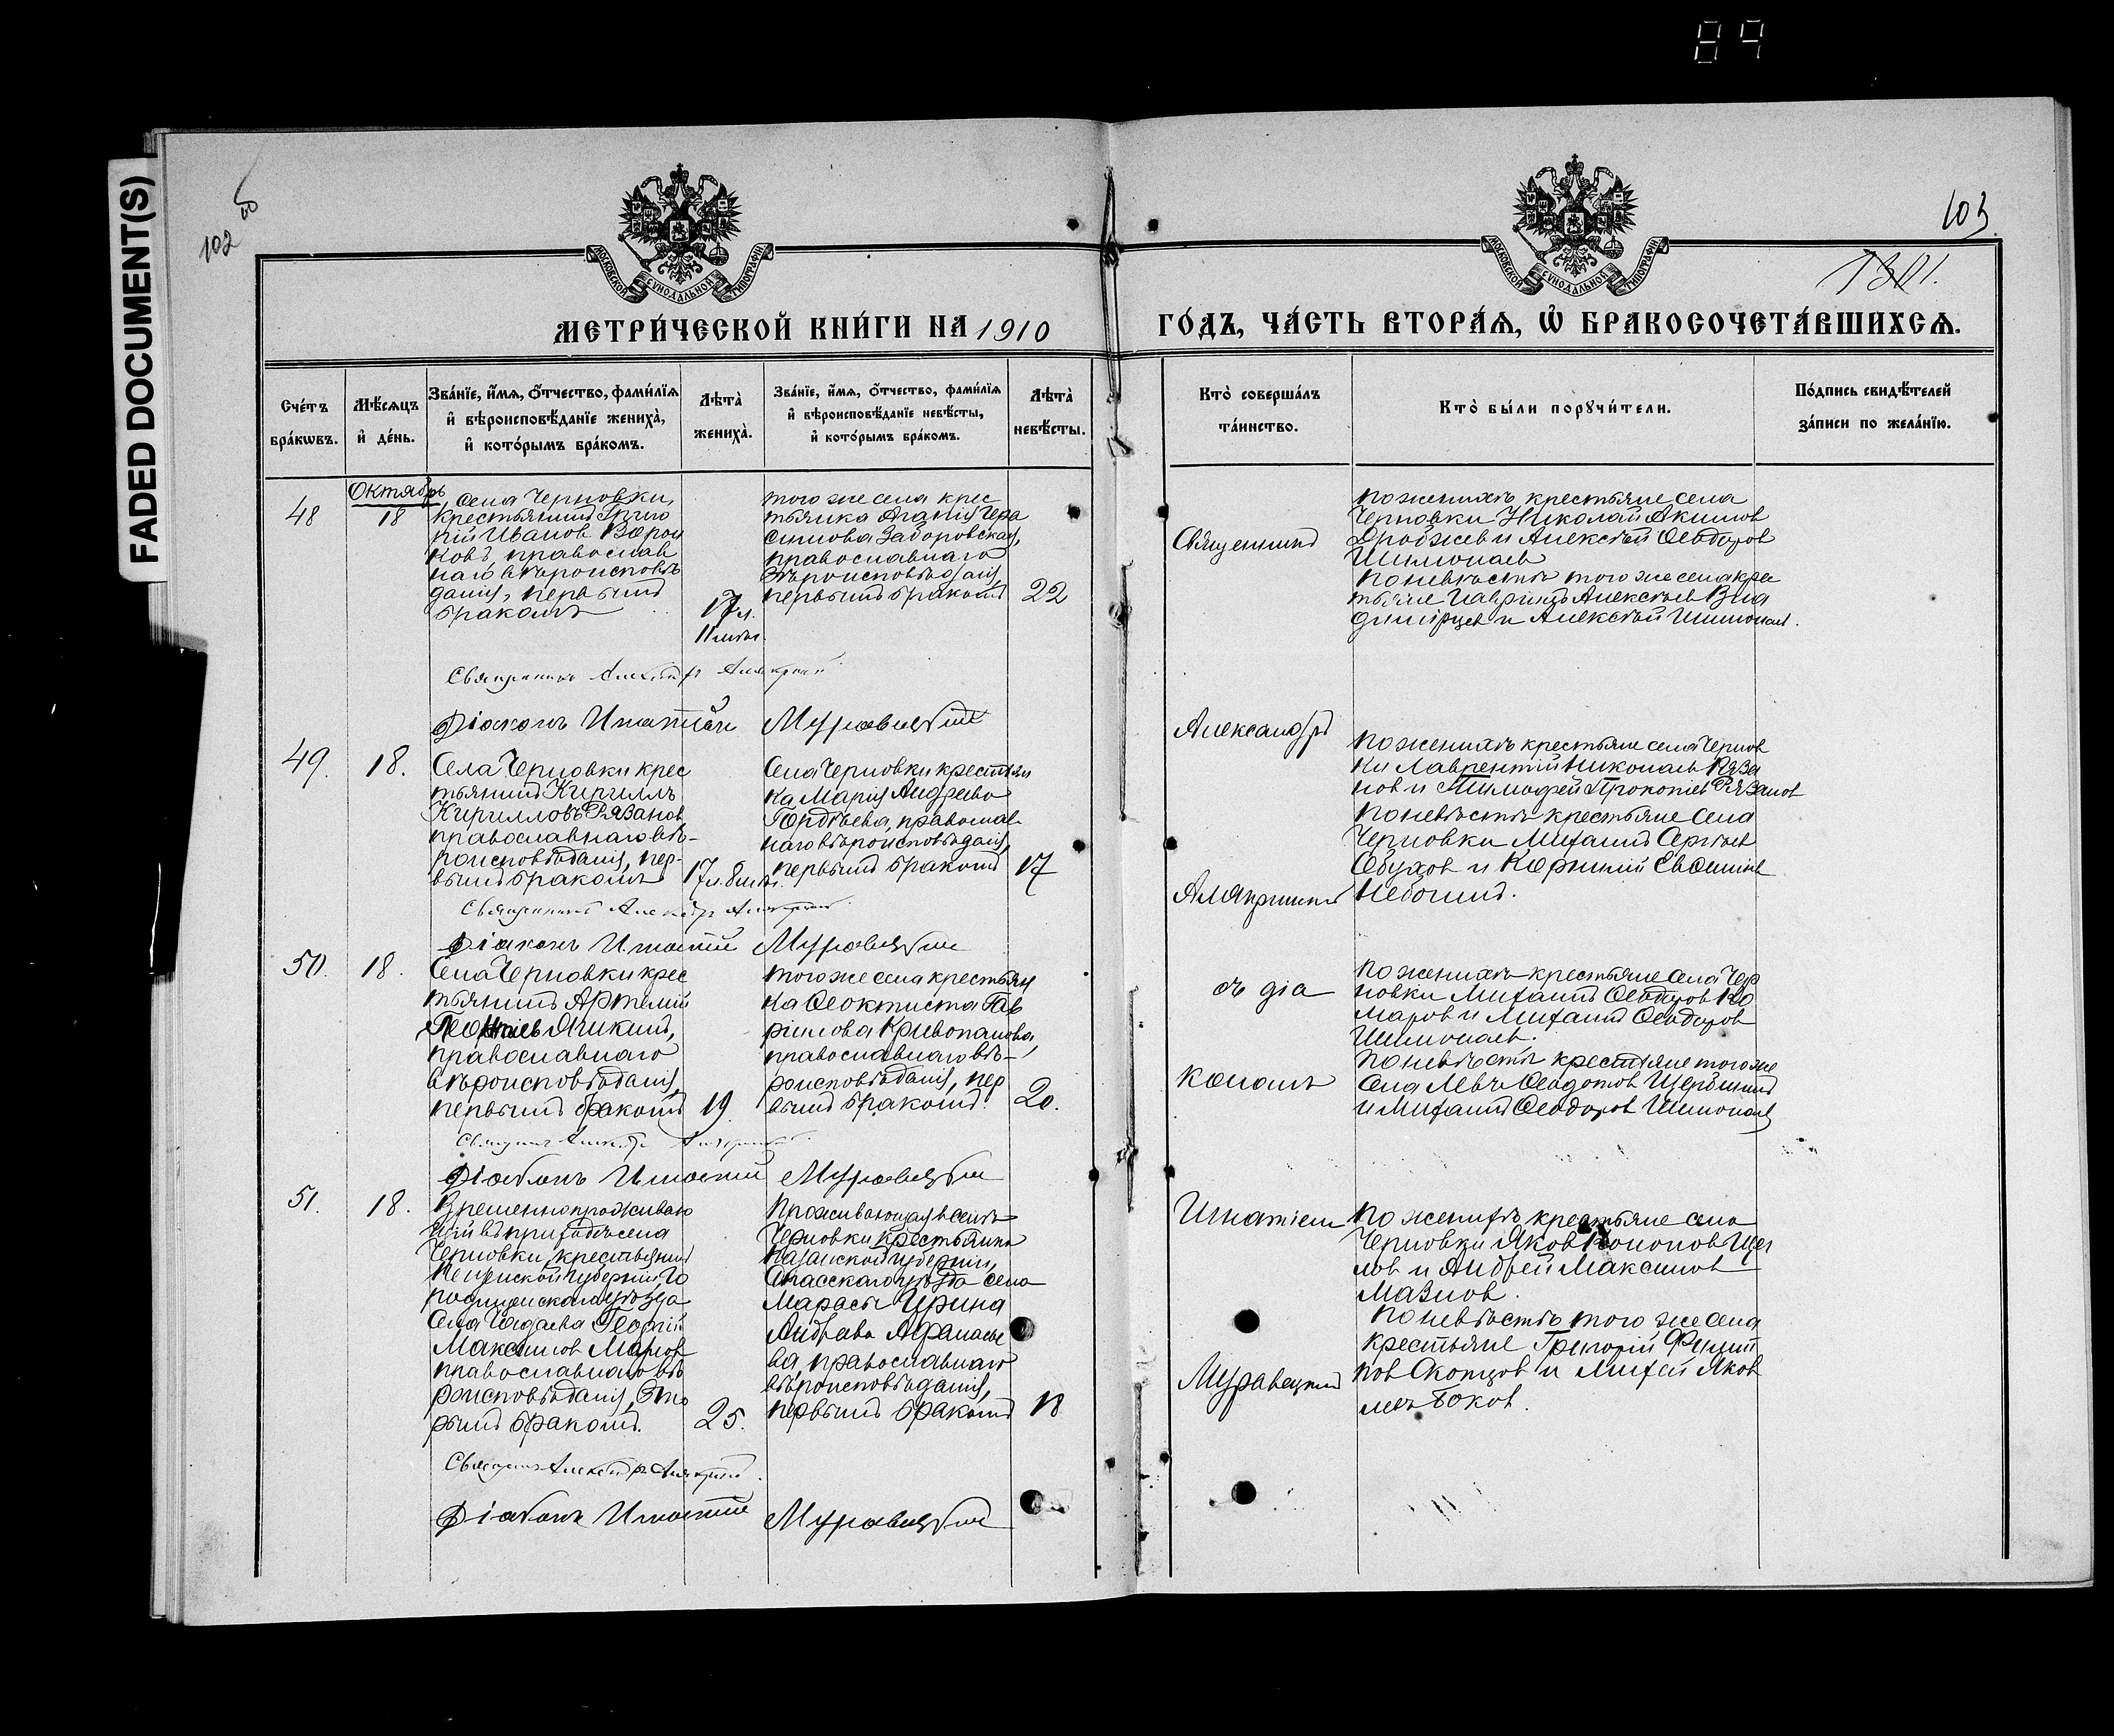 84
FADED DOCUMENT(S)
102 об
103
1301.
МОСКОВСКОЙ СУНОДАЛЬНОЙ ТИПОГРАФІИ
МОСКОВСКОЙ СУНОДАЛЬНОЙ ТИПОГРАФІИ
МЕТРИ́ЧЕСКОЙ КНИ́ГИ НА 1910
ГО́ДЪ, ЧА́СТЬ ВТОРА́Ѧ, Ѡ҆ БРАКОСОЧЕТА́ВШИХСѦ.
Сче́тъ бра́кѡвъ.
Мѣ́сяцъ и҆ де́нь.
Зва́нїе, и҆́мѧ, ѻ҆́тчество, фами́лїѧ
и҆ вѣроисповѣ́данїе жениха̀,
и҆ кото́рымъ бра́комъ.
Лѣта̀ жениха̀.
Зва́нїе, и҆́мѧ, ѻ҆́тчество, фами́лїѧ
и҆ вѣроисповѣ́данїе невѣ́сты,
и҆ кото́рымъ бра́комъ.
Лѣта̀ невѣ́сты.
Кто̀ соверша́лъ
та́инство.
Кто̀ бы́ли порꙋчи́тели.
По́дпись свидѣ́телей
за́писи по жела́нїю.
Октябрь
48
18
Села Черновки,
крестьянинъ Григо
рій Иванов Ворон
ковъ, православ
наго вѣроисповѣ
данія, первымъ
бракомъ
17 л.
11 мѣс.
того же села крес
тьянка Агапія Гера
симова Заборовская,
православнаго
вѣроисповѣданія,
первымъ бракомъ
22
Священникъ
по женихѣ крестьяне села
Черновки Николай Акимов
и Алексѣй Ѳеодоров
по невѣстѣ того же села кре
стьяне Алексѣев Вла
димірцев и Алексѣй
Священникъ Александръ
Діаконъ Игнатій Муравецкій
Александръ
49.
18.
Села Черновки крес
тьянинъ Кириллъ
Кирилловъ Рязанов,
православнаго вѣ-
роисповѣданія, пер-
вымъ бракомъ
17 л. 8 мѣс.
Села Черновки крестьян
ка Марія Андреева
Гордѣева, православ
наго вѣроисповѣданія,
первымъ бракомъ
17
по женихѣ крестьяне села Чернов
ки Лаврентій Николаев Ряза
нов и Тимофей Прокопіев Рязанов
по невѣстѣ крестьяне села
Черновки Михаилъ Сергѣев
Обухов и
Священникъ Александръ
Діаконъ Игнатій Муравецкій
50.
18.
Села Черновки крес
тьянинъ Артемій
православнаго
вѣроисповѣданія,
первымъ бракомъ
19.
того же села крестьян
ка Ѳеоктиста Гав
рилова Кривопалова,
православнаго вѣ-
роисповѣданія, пер
вымъ бракомъ.
20.
съ діа
кономъ
по женихѣ крестьяне села Чер
новки Михаилъ Ѳеодоров Ко
маров и Михаилъ Ѳеодоров
по невѣстѣ крестьяне того же
села Левъ Ѳеодотов Щербининъ
и Михаилъ Ѳеодоров
Діаконъ Игнатій Муравецкій
51.
18.
Временно проживаю
щій въ приходѣ села
Черновки, крестьянинъ
Пензенской губерніи Го
родищенскаго уѣзда
села Георгій
Максимов
православнаго вѣ
роисповѣданія, вто
рымъ бракомъ.
25.
Проживающая в селѣ
Черновки крестьянка
Казанской губерніи,
Спасскаго уѣзда села
Марасы Ирина
Андреева Афанасье
ва, православнаго
вѣроисповѣданія,
первымъ бракомъ
18
Игнатіем
Муравецкимъ
по женихѣ крестьяне села
Черновки Яков Кононов Щег
лов и Андрей Максимов
Мазнов.
по невѣстѣ того же села
крестьяне Григорій Филип
пов Скопцов и Яков
лев Боков.
Діаконъ Игнатій Муравецкій